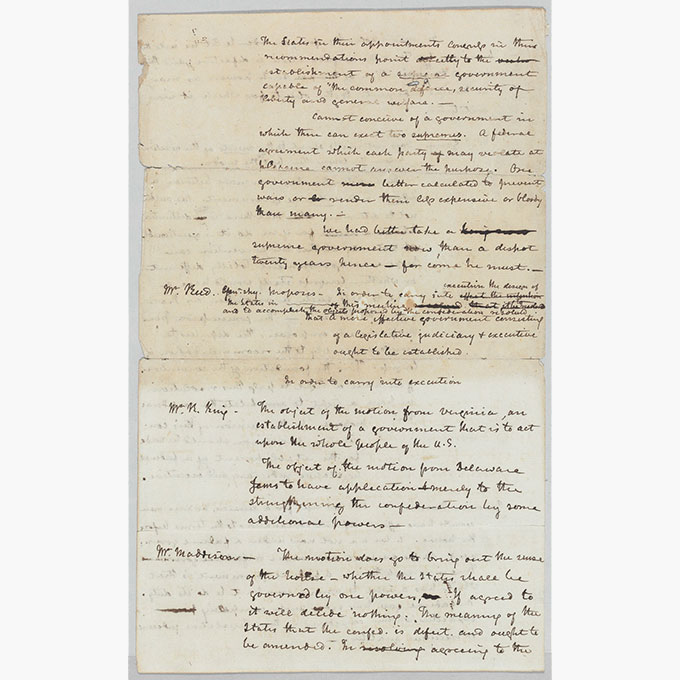 The States in their appointments Congress in their
recommendations point directly to the
establishment of a supreme government
capable of "the common defence, security of
liberty and general welfare. —
Cannot conceive of a government in
which there can exist two supremes. A federal
agreement which each party may violate at
pleasure cannot answer the purpose. One
government better calculated to prevent
wars or render them less expensive or bloody
than many. —
We had better take a
supreme government now, than a despot
twenty years hence — for come he must. —
Mr. Reed. proposes — In order to carry into execution the design of
the States in this meeting
and to accomplish the objects proposed by the confederation resolved
that a more effective government consisting
of a legislative judiciary & executive
ought to be established.
In order to carry into execution
Mr. R. King — The object of the motion from Virginia, an
establishment of a government that is to act
upon the whole people of the U.S.
The object of the motion from Delaware
seems to have application merely to the
strengthening the confederation by some
additional powers —
Mr. Maddison — The motion does go to bring out the sense
of the house — whether the States shall be
governed by one power. If agreed to
it will decide nothing. The meaning of the
States that the confed. is defect. and ought to
be amended. In agreeing to the